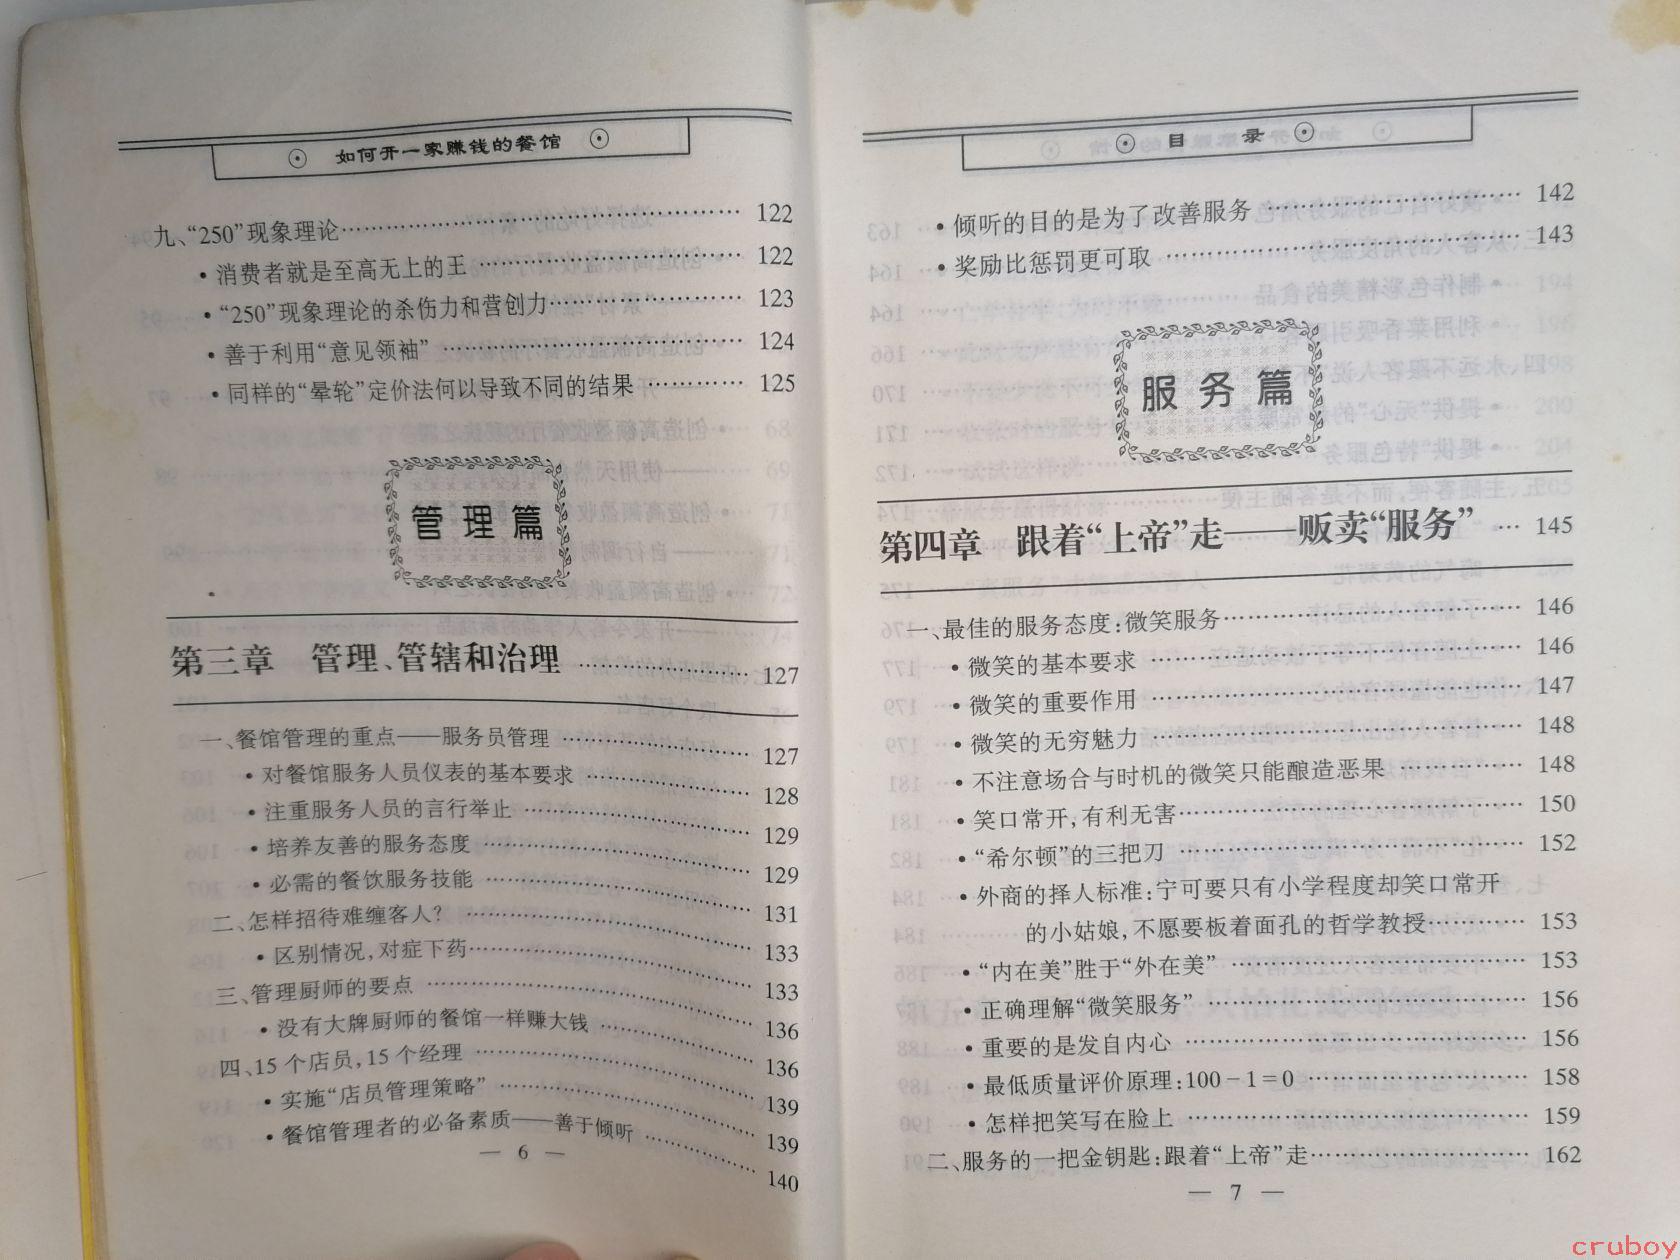 如何开一家赚钱的餐馆
九、“250”现象理论…… 122
•消费者就是至高无上的王 …… 122
•“250”现象理论的杀伤力和营创力…… 123
•善于利用“意见领袖” …… 124
•同样的“晕轮”定价法何以导致不同的结果 …… 125
管理篇
第三章 管理、管辖和治理 …… 127
一、餐馆管理的重点——服务员管理 …… 127
•对餐馆服务人员仪表的基本要求 …… 128
•注重服务人员的言行举止 …… 129
•培养友善的服务态度 …… 129
•必需的餐饮服务技能 …… 131
二、怎样招待难缠客人? …… 133
•区别情况,对症下药…… 133
三、管理厨师的要点 …… 136
•没有大牌厨师的餐馆一样赚大钱 …… 136
四、15个店员,15个经理 …… 139
•实施“店员管理策略” …… 139
•餐馆管理者的必备素质——善于倾听 …… 140
— 6 —
目 录
•倾听的目的是为了改善服务 …… 142
•奖励比惩罚更可取 …… 143
服务篇
第四章 跟着“上帝”走——贩卖“服务” … 145
一、最佳的服务态度:微笑服务…… 146
•微笑的基本要求 …… 146
•微笑的重要作用 …… 147
•微笑的无穷魅力 …… 148
•不注意场合与时机的微笑只能酿造恶果 …… 148
•笑口常开,有利无害…… 150
•“希尔顿”的三把刀 …… 152
•外商的择人标准:宁可要只有小学程度却笑口常开
的小姑娘,不愿要板着面孔的哲学教授…… 153
•“内在美”胜于“外在美” …… 153
•正确理解“微笑服务” …… 156
•重要的是发自内心 …… 156
•最低质量评价原理:100－1＝0 …… 158
•怎样把笑写在脸上 …… 159
二、服务的一把金钥匙:跟着“上帝”走…… 162
— 7 —
cruboy